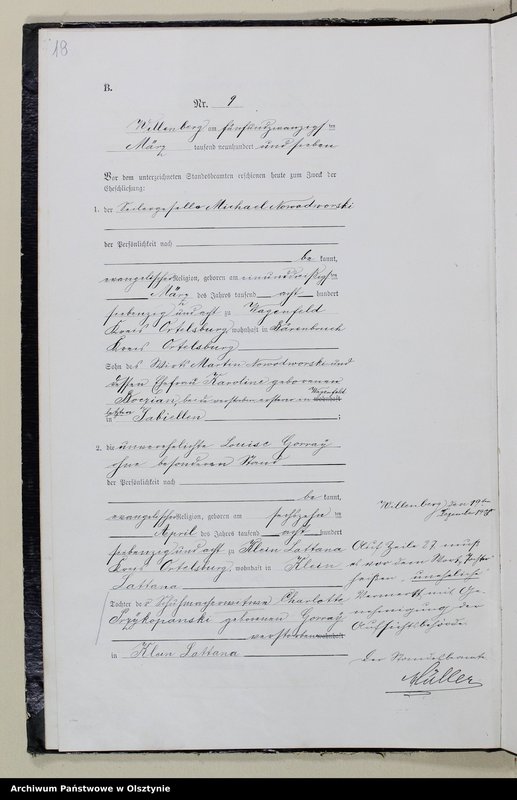 18
B.
Nr. 9
Willenberg am fünfundzwanzigsten
März tausend neunhundert und sieben
Vor dem unterzeichneten Standesbeamten erschienen heute zum Zweck der
Eheschließung:
1. der Seilergeselle Michael Nowodworski
der Persönlichkeit nach
be kannt,
evangelischer Religion, geboren am einunddreißigsten
März des Jahres tausend acht hundert
siebenzig und acht zu Wagenfeld
Kreis Ortelsburg, wohnhaft in Bärenbruch
Kreis Ortelsburg
Sohn des Wirts Martin Nowodworski und
dessen Ehefrau Karoline geborenen
beide verstorben, ersterer in Wagenfeld wohnhaft
letztere
in Jabiellen ;
2. die unverehelichte Louise Gorray
ohne besonderen Stand
der Persönlichkeit nach
be kannt,
evangelischer Religion, geboren am sechszehnten
April des Jahres tausend acht hundert
siebenzig und acht zu Klein Lattana
Kreis Ortelsburg, wohnhaft in Klein
Lattana
Tochter der Schuhmacherwitwe Charlotte
geborenen Gorray
verstorben wohnhaft
in Klein Lattana
Willenberg, den 19ten
Dezember
Auf Zeile 27 muß
es vor dem Wort Tochter
heißen „uneheliche"
Vermerkt mit Ge-
nehmigung der
Aufsichtsbehörde.
Der Standesbeamte
Müller
Archiwum Państwowe w Olsztynie